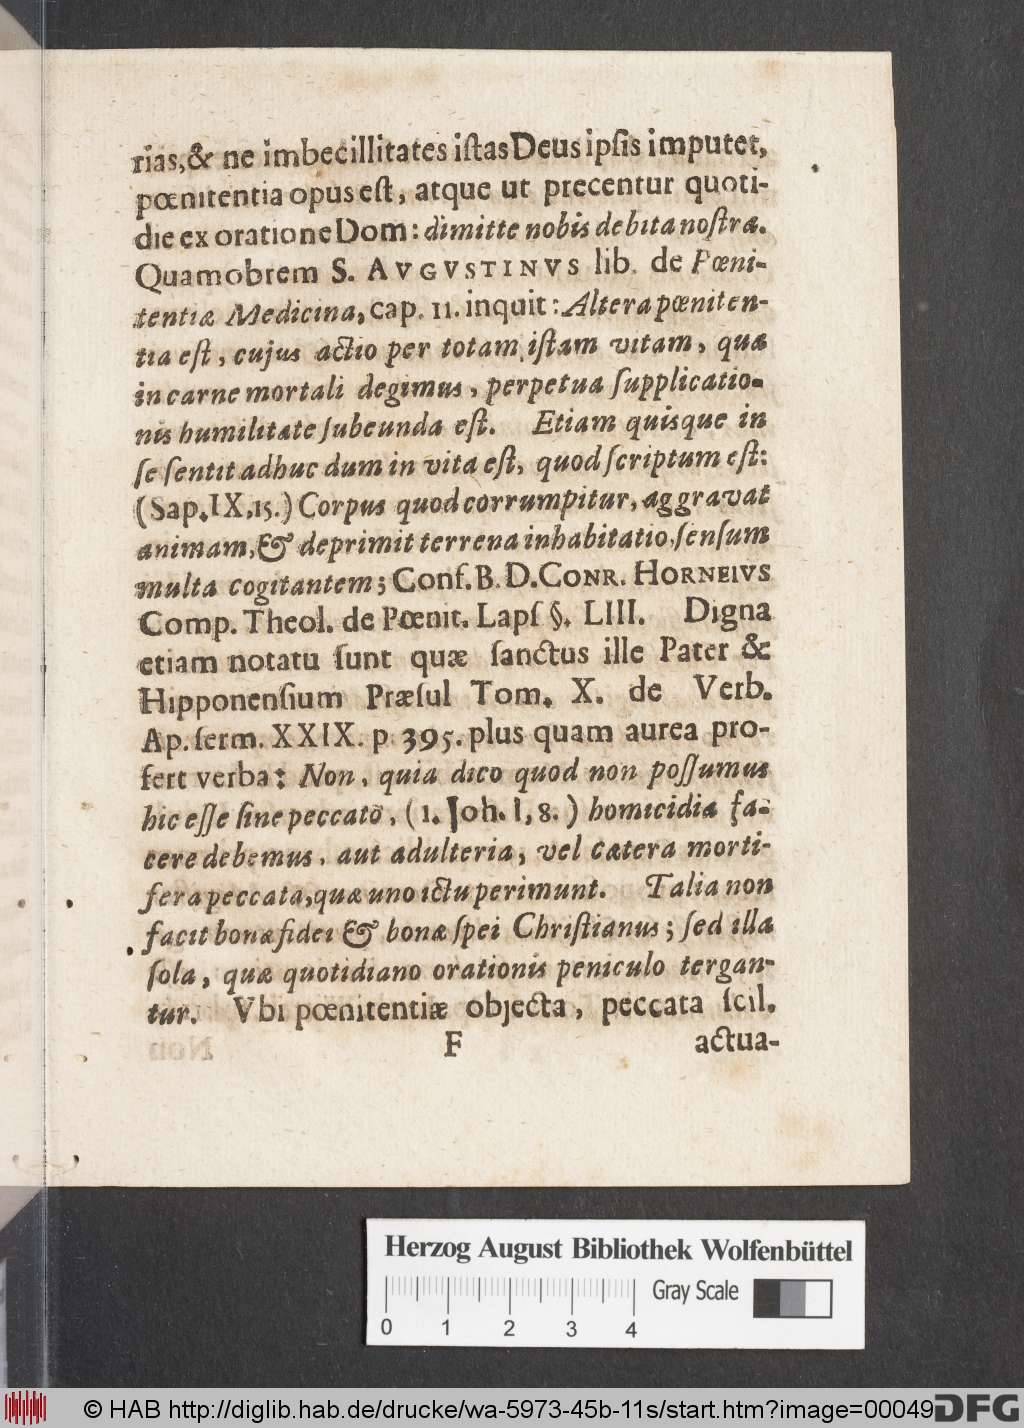 rias, & ne imbecillitates istas Deus ipsis imputet,
pœnitentia opus est, atque ut precentur quoti-
die ex oratione Dom: dimitte nobis debita nostra.
Quamobrem S. AVGVSTINVS lib. de Pœni-
tentiæ Medicina, cap. 11. inquit: Altera pœniten-
tia est, cujus actio per totam istam vitam, quæ
in carne mortali degimus, perpetua supplicatio-
nis humilitate subeunda est. Etiam quisque in
se sentit adhuc dum in vita est, quod scriptum est:
(Sap. IX, 15.) Corpus quod corrumpitur, aggravat
animam, & deprimit terrena inhabitatio, sensum
multa cogitantem; Conf. B. D. CONR. HORNEIVS
Comp. Theol. de Pœnit. Laps §. LIII. Digna
etiam notatu sunt quæ sanctus ille Pater &
Hipponensium Præsul Tom. X. de Verb.
Ap. serm. XXIX. p 395. plus quam aurea pro-
fert verba: Non, quia dico quod non possumus
hic esse sine peccato, (1. Joh. I, 8.) homicidia fa-
cere debemus, aut adulteria, vel cætera morti-
fera peccata, quæ uno ictu perimunt. Talia non
facit bonæ fidei & bonæ spei Christianus; sed illa
sola, quæ quotidiano orationis peniculo tergan-
tur. Vbi pœnitentiæ objecta, peccata scil.
F actua-
Herzog August Bibliothek Wolfenbüttel
Gray Scale
0 1 2 3 4
© HAB http://diglib.hab.de/drucke/wa-5973-45b-11s/start.htm?image=00049
DFG